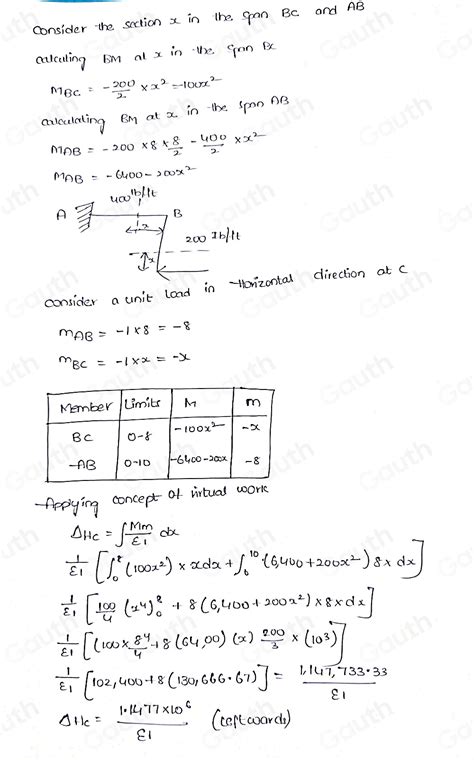 Consider the section x in the span BC and AB
calculting BM at x in the span BC
MBC = -200/2 × x² = -100x²
calculating BM at x in the span AB
MAB = -200 × 8 × 8/2 - 400/2 × x²
MAB = -6400 - 200x²
400 lb/ft
A
B
x
200 Ib/ft
x
consider a unit load in Horizontal direction at C
mAB = -1×8 = -8
mBC = -1×x = -x
Member Limits M m
BC 0-8 -100x² -x
-AB 0-10 -6400-200x -8
Applying concept of virtual work
ΔHc = ∫ Mm/EI dx
1/EI [∫₀⁸ (100x²) × xdx + ∫₀¹⁰ (6,400+200x²) 8 × dx]
1/EI [100/4 (x⁴)⁸₀ + 8 (6,400+200x²) × 8 × dx]
1/EI [(100 × 8⁴/4 + 8 (64,00) (x) 200/3 × (10³)]
1/EI [102,400 + 8 (130,666.67)] = 1,147,733.33/EI
ΔHc = 1.1477×10⁶/EI (leftwards)
Gauth